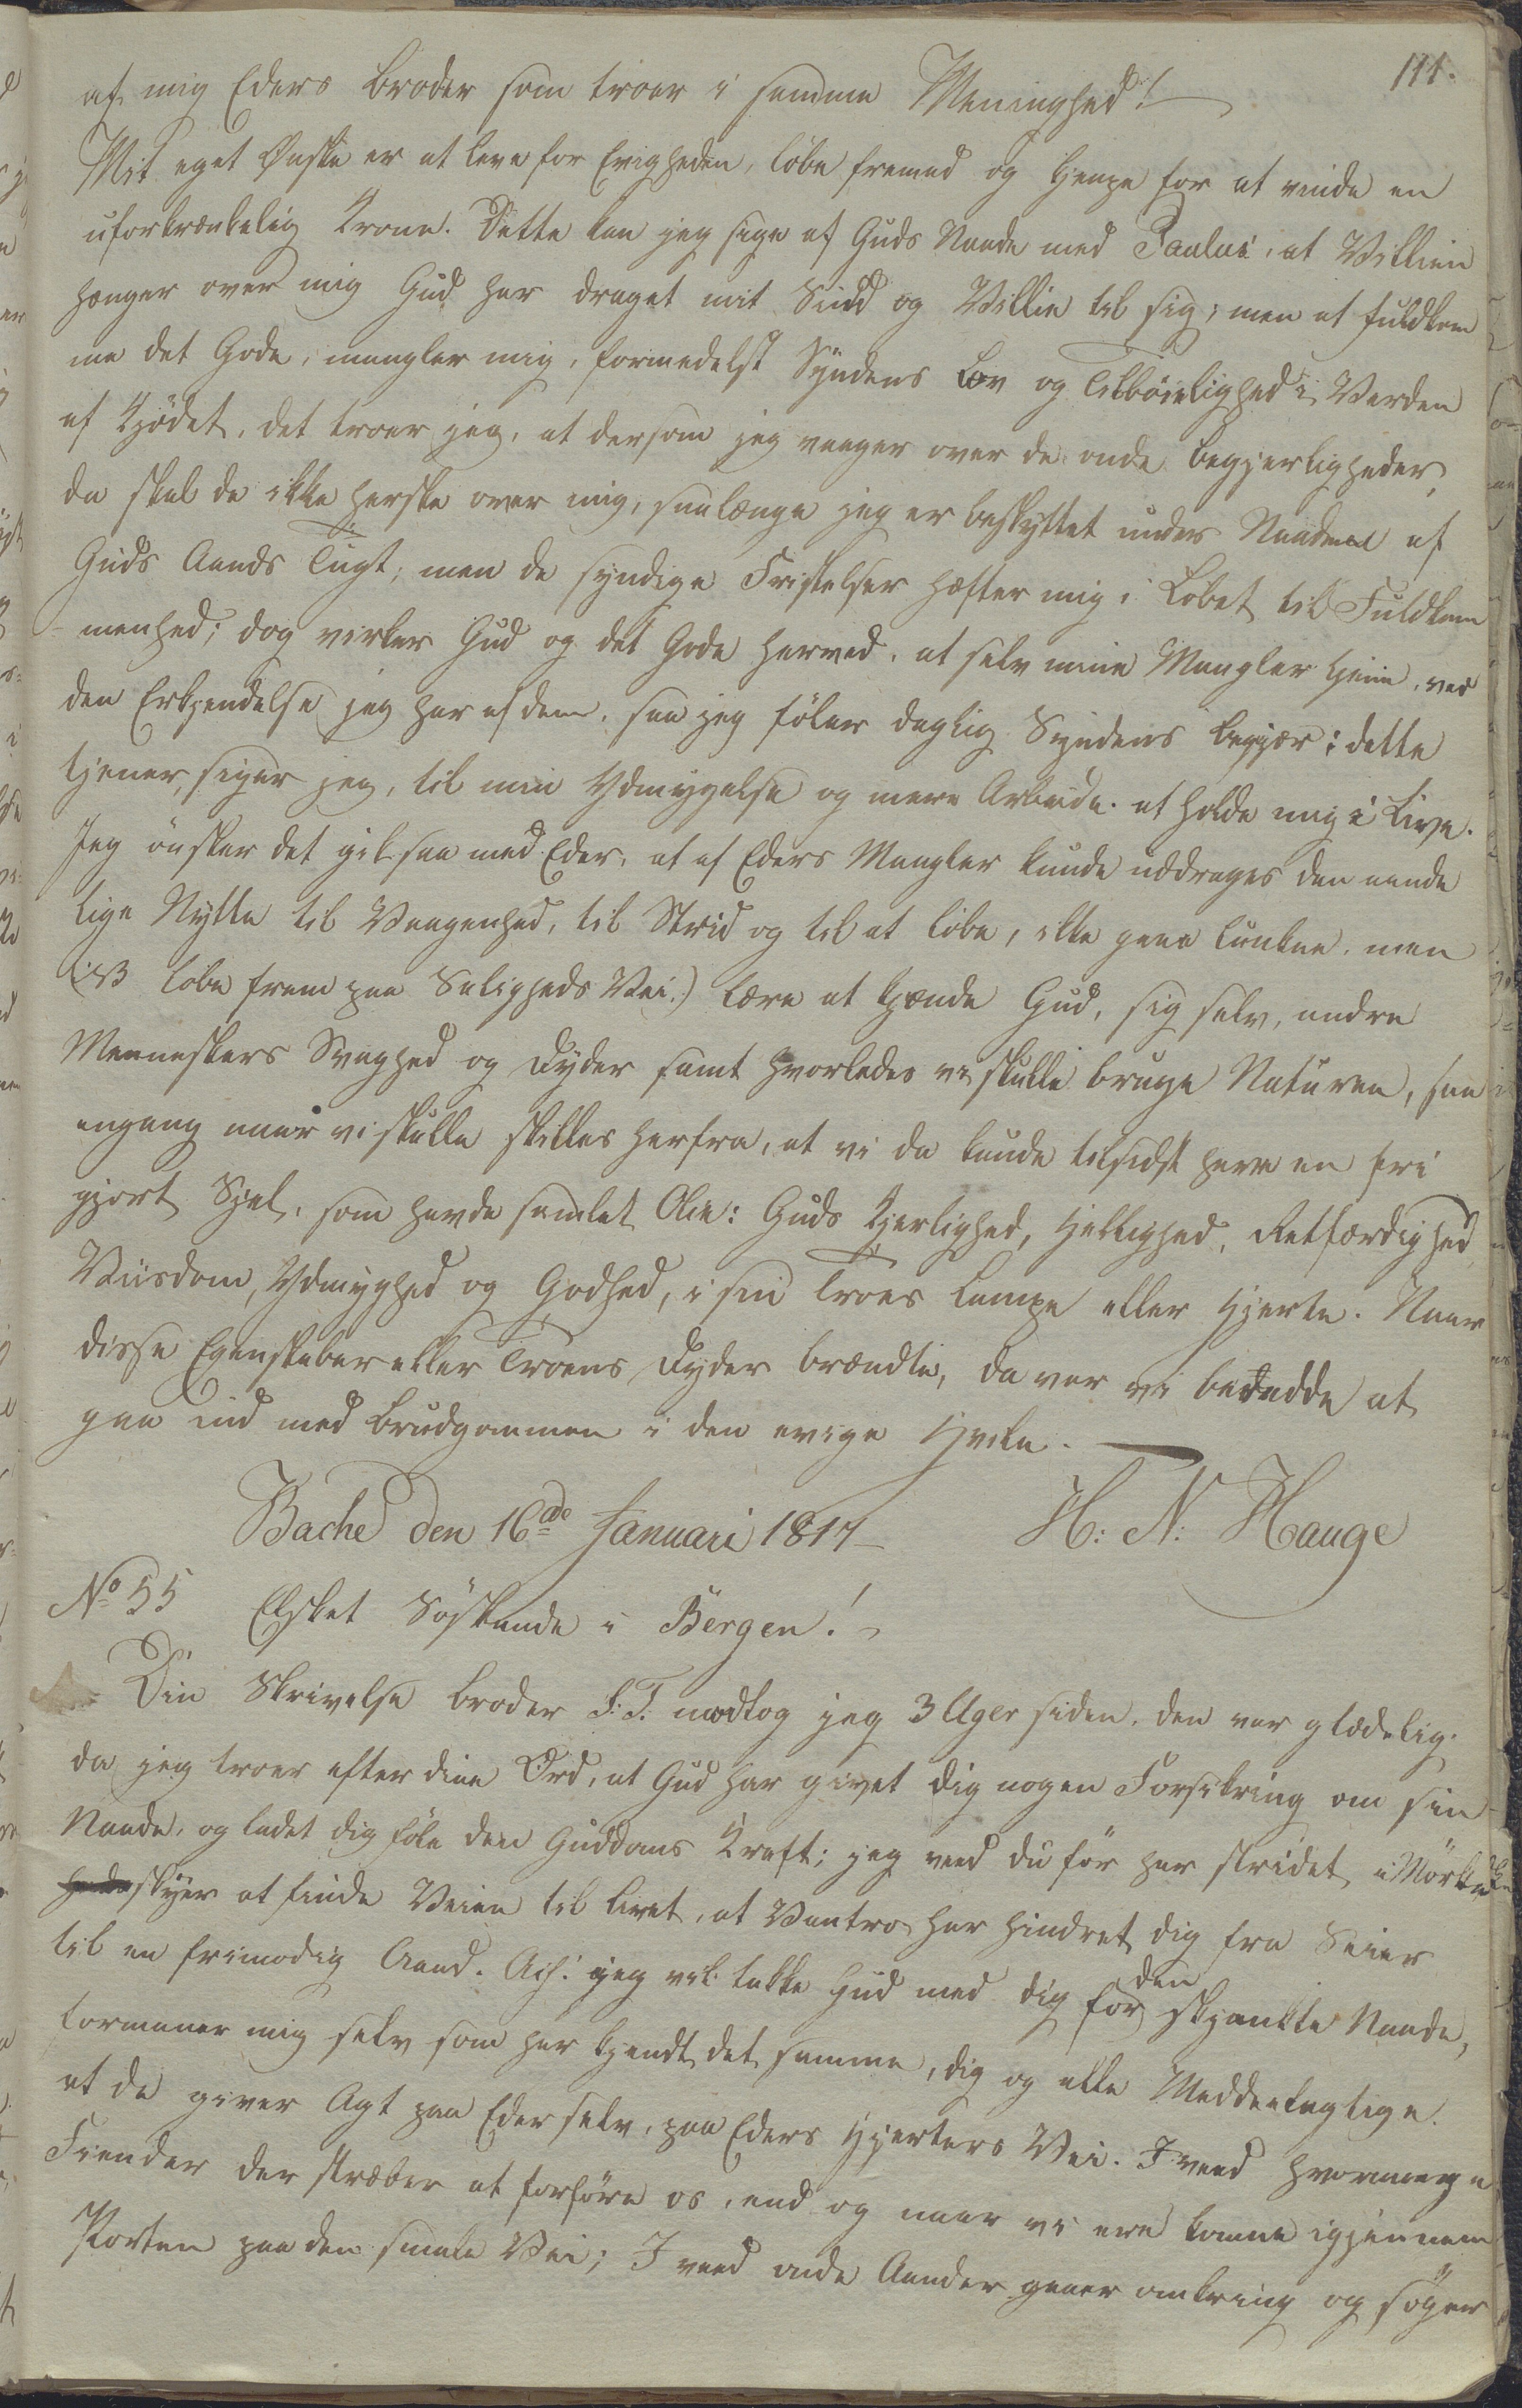 111.
af mig Eders Broder som troer i samme Meenighed!
Mit eget Ønske er at leve for Evigheden, løbe fremad og kjempe for at vinde en
uforkrænkelig Krone. Dette kan jeg sige af Guds Naade med Paulus, at Villien
hænger over mig Gud har draget mit Sind og Villie til sig; men at fuldkom
me det Gode, mangler mig, formedelst Syndens Lov og Tilbøielighed i Verden
af Kjødet, det troer jeg, at dersom jeg vaager over de onde Begjerligheder,
da skal de ikke herske over mig, saalænge jeg er beskyttet under Naaden af
Guds Aands Tugt; men de syndige Fristelser hæfter mig i Løbet til Fuldkom
-menhed; dog virker Gud og det Gode herved, at selv mine Mangler tjene, ved
den Erkjendelse jeg har af dem, saa jeg føler daglig Syndens Begjær; dette
tjener, siger jeg, til min Ydmygelse og mere Arbeide at holde mig i Live.
Jeg ønsker det gik saa med Eder, at af Eders Mangler kunde uddrages den aande
lige Nytte til Vaagenhed, til Strid og til at løbe, ikke gaae lunkne, men
løbe frem paa Saligheds Vei.) lære at kjende Gud, sig selv, andre
Menneskers Svaghed og Dyder samt hvorledes vi skulle bruge Naturen, saa
engang naar vi skulle skilles herfra, at vi da kunde tilsidst have en fri
gjort Sjel, som havde samlet Olie: Guds Kjerlighed, Hellighed, Retfærdighed
Viisdom, Ydmyghed og Godhed, i sin Troes Lampe eller Hjerte. Naar
disse Egenskaber eller Troens Dyder brændte, da var vi beredde at
gaa ind med Brudgommen i den evige Hvile.
Bache den 16de Januari 1817 H: N: Hauge
No 55 Elsket Søskende i Bergen!
Din Skrivelse Broder modtog jeg 3 Uger siden, den var glædelig.
da jeg troer efter dine Ord, at Gud har givet dig nogen Forsikring om sin
Naade, og ladet dig føle den Guddoms Kraft; jeg veed du før har stridet i Mørke
skyer at finde Veien til Livet, at Vantro har hindret dig fra Seier
til en frimodig Aand. Ach! jeg vil takke Gud med dig for den skjenkte Naade,
formaner mig selv som har kjendt det samme, dig og alle Meddeelagtige.
at de giver Agt paa Eder selv, paa Eders Hjerters Vei. I veed hvormange
Fiender der stræber at forføre os, end og naar vi ere komne igjennem
Porten paa den smale Vei; I veed onde Aander gaaer omkring og søger